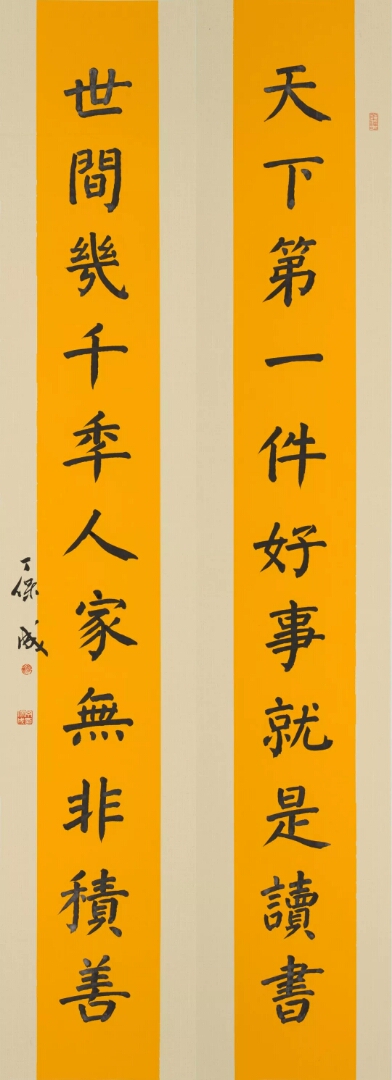 天下第一件好事就是讀書
世間幾千季人家無非積善
丁保成